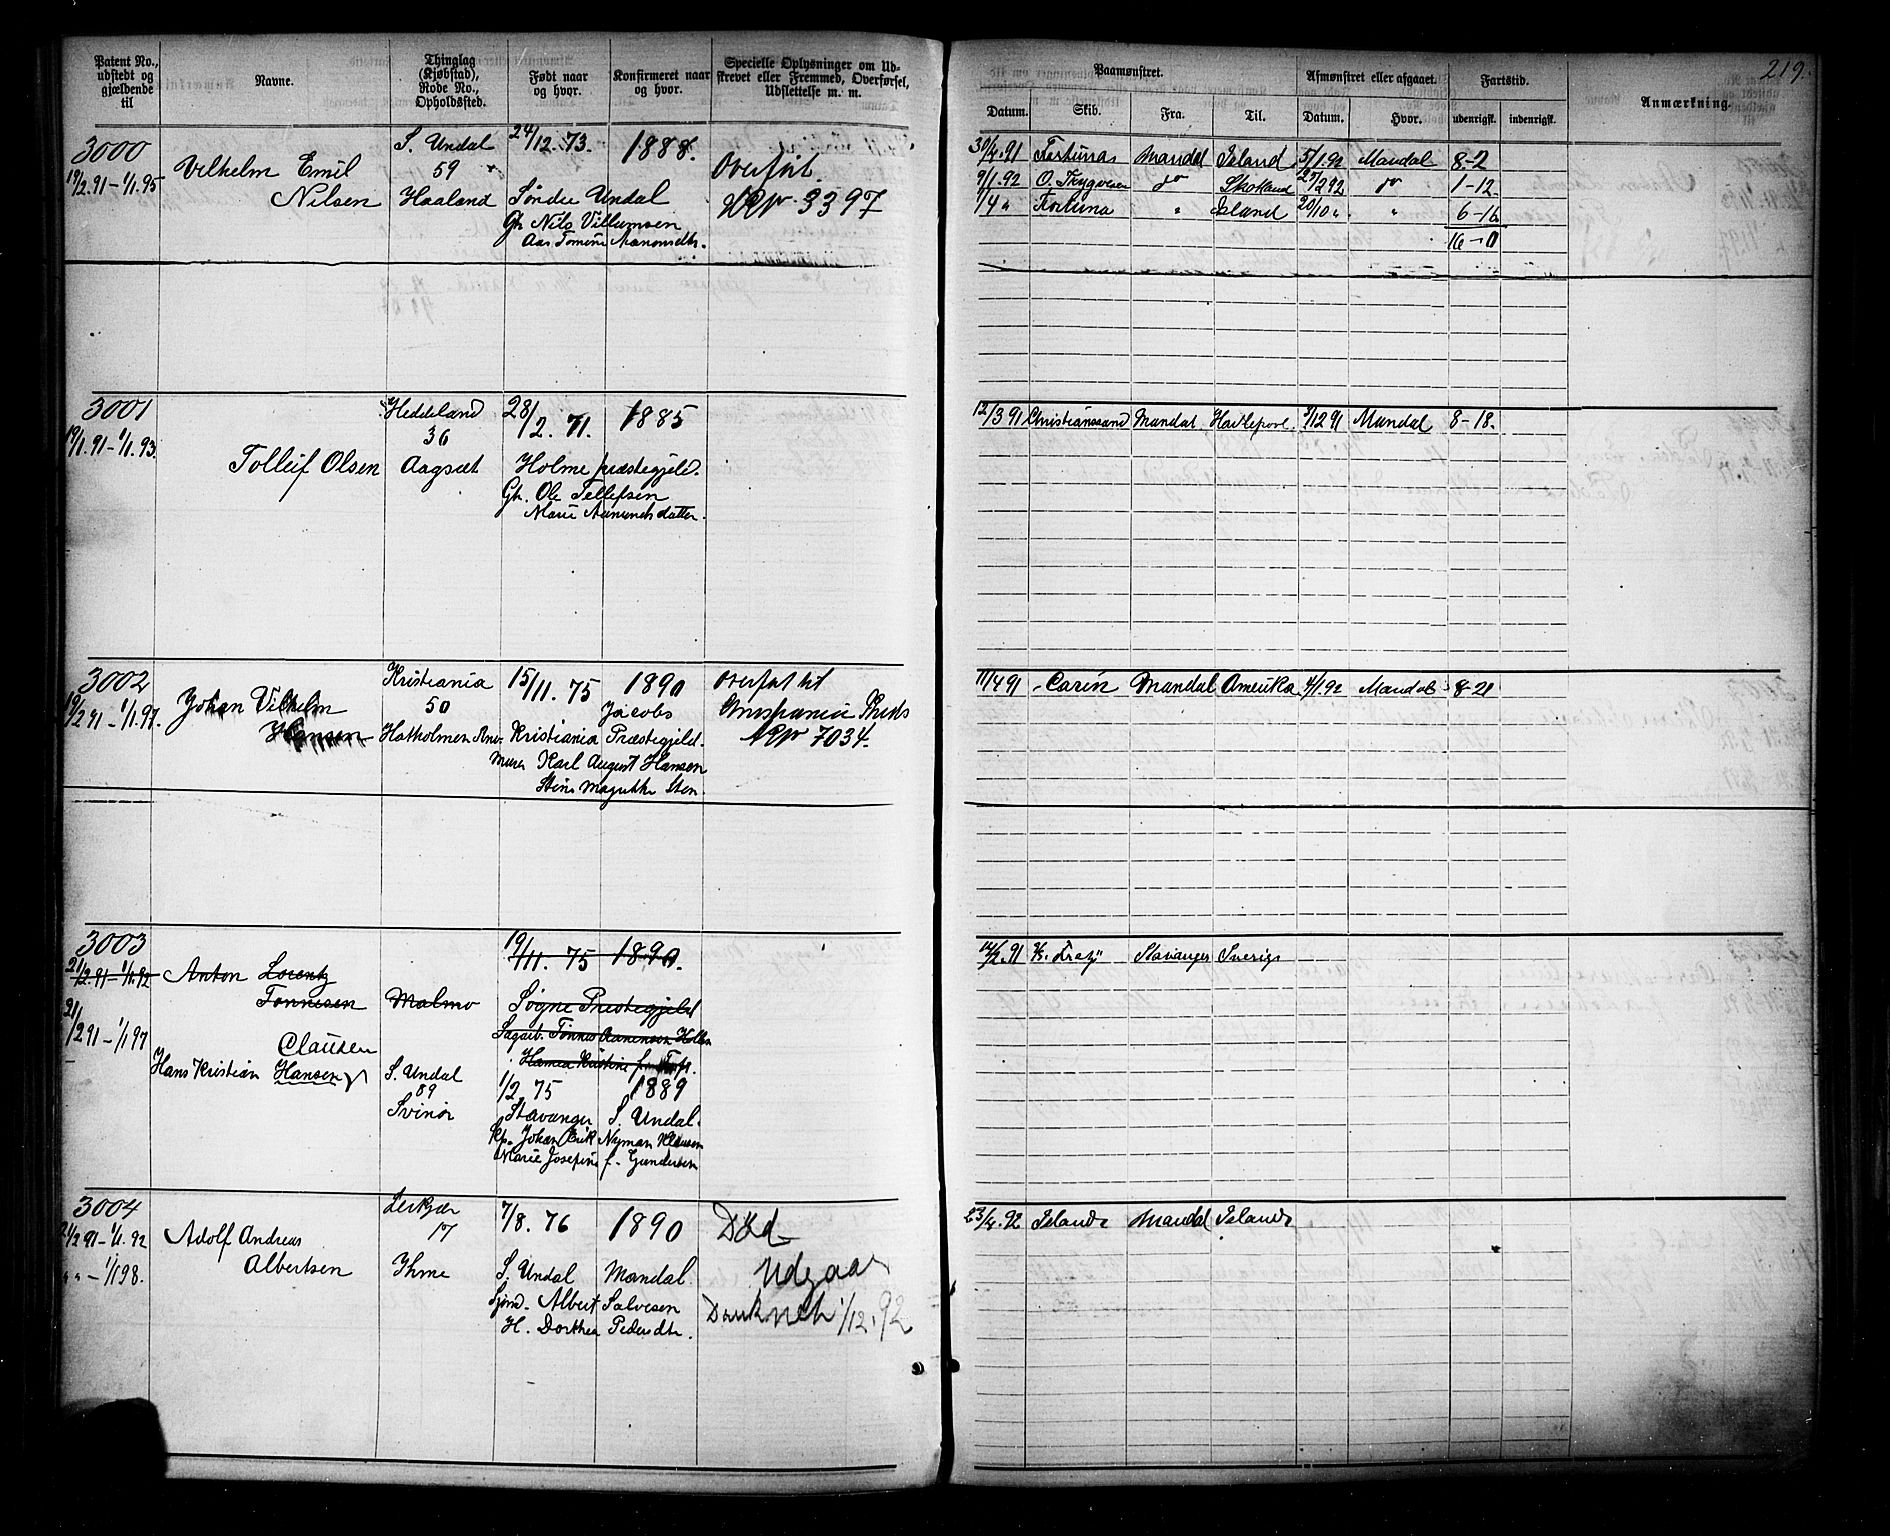 219.
Patent No., udstedt og gjældende til
Navne.
Thinglag (Kjøbstad), Rode No., Opholdssted.
Født naar og hvor.
Konfirmeret naar og hvor.
Specielle Oplysninger om Udskrevet eller Fremmed, Overførsel, Udslettelse m. m.
Paamønstret.
Afmønstret eller afgaaet.
Fartstid.
Anmærkning.
Datum.
Skib.
Fra.
Til.
Datum.
Hvor.
udenrigsk.
indenrigsk.
3000
S. Undal
24/12. 73.
1888.
Overført.
19/2.91 - 1/1.95
Vilhelm Emil
59
Nilsen
Haaland
Søndre Undal
No 3397
Gb. Nils Villumsen
Aas. Tomine
30/4.91 Fortuna Mandal Island 5/1.92 Mandal 8-2
9/1.92 O. Trygveson do Skotland 25/2 92 do 1-12
1/4 " Fortuna " Island 20/10 " " 6-16
16-0
3001
Heddeland
28/2. 71.
1885
19/1.91 - 1/1.93.
36
Tollief Olsen
Aagsæt
Holme præstegjeld.
Gb. Ole Tellefsen
Marie Aanunds datter.
12/3 91 Christianssand Mandal Hartlepool 3/12 91 Mandal 8-18.
3002
Kristiania
15/11. 75
1890
Overført til
19/2 91 - 1/1.97.
Johan Vilhelm
50
Jacobs
Kristiania
Hansen
Hatholmen
Kristiania
Præstegjeld.
No 7034.
Murer Karl August Hansen
Sten.
11/4 91 Carin Mandal Amerika 4/1.92 Mandal 8-21
3003
19/11. 75
1890.
21/2.91 - 1/1.92
Anton Lorentz
Tønnesen
Malmø
Søgne Prestegjeld
21/2 91 - 1/1 97
Sagarb. Tønnes Aanensen
Clausen
Hans Kristian Hansen
S. Undal
89
1/2. 75
1889
Svinør
Stavanger
S. Undal.
Johan Erik Nyman Klausen
Marie Josefine f. Gundersen
Stavanger Sverige
3004
Leikjær
7/8. 76
1890
Død
21/2 91 - 1/1. 92
Adolf Andreas
17
" " - 1/1 98.
Albertsen
Ihme
S. Undal
Mandal.
Udgaar
Sjømd. Albert Salvesen
H. Dorthea Pedersdtr.
1/12. 92
23/4. 92 Island Mandal Island